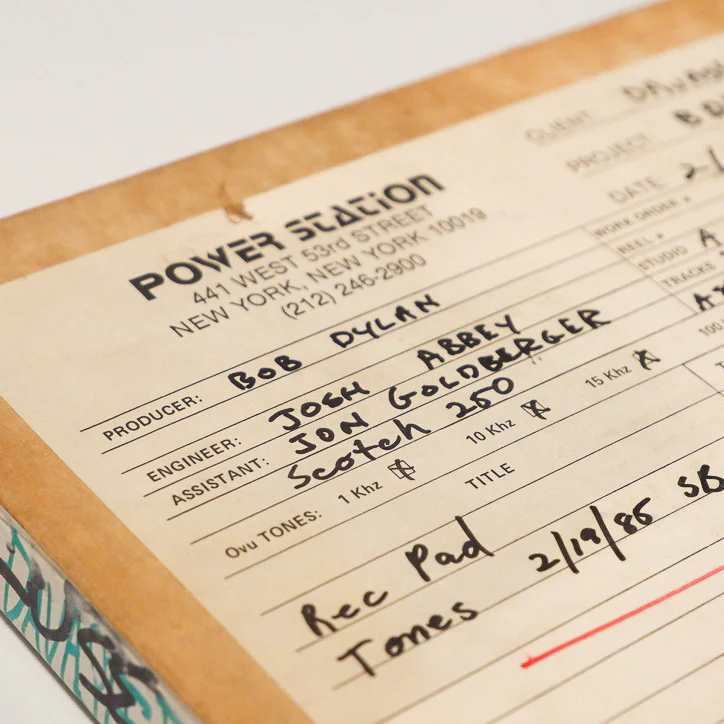 POWER STATION
441 WEST 53rd STREET
NEW YORK, NEW YORK 10019
(212) 246-2900
CLIENT
PROJECT
DATE 2/
WORK ORDER #
REEL #
STUDIO A
TRACKS
PRODUCER: BOB DYLAN
ENGINEER: JOSH ABBEY
ASSISTANT: JON GOLDBERGER
Scotch 250
Ovu TONES: 1 Khz 10 Khz 15 Khz 100
TITLE
Rec Pad 2/19/85 SB
Tones